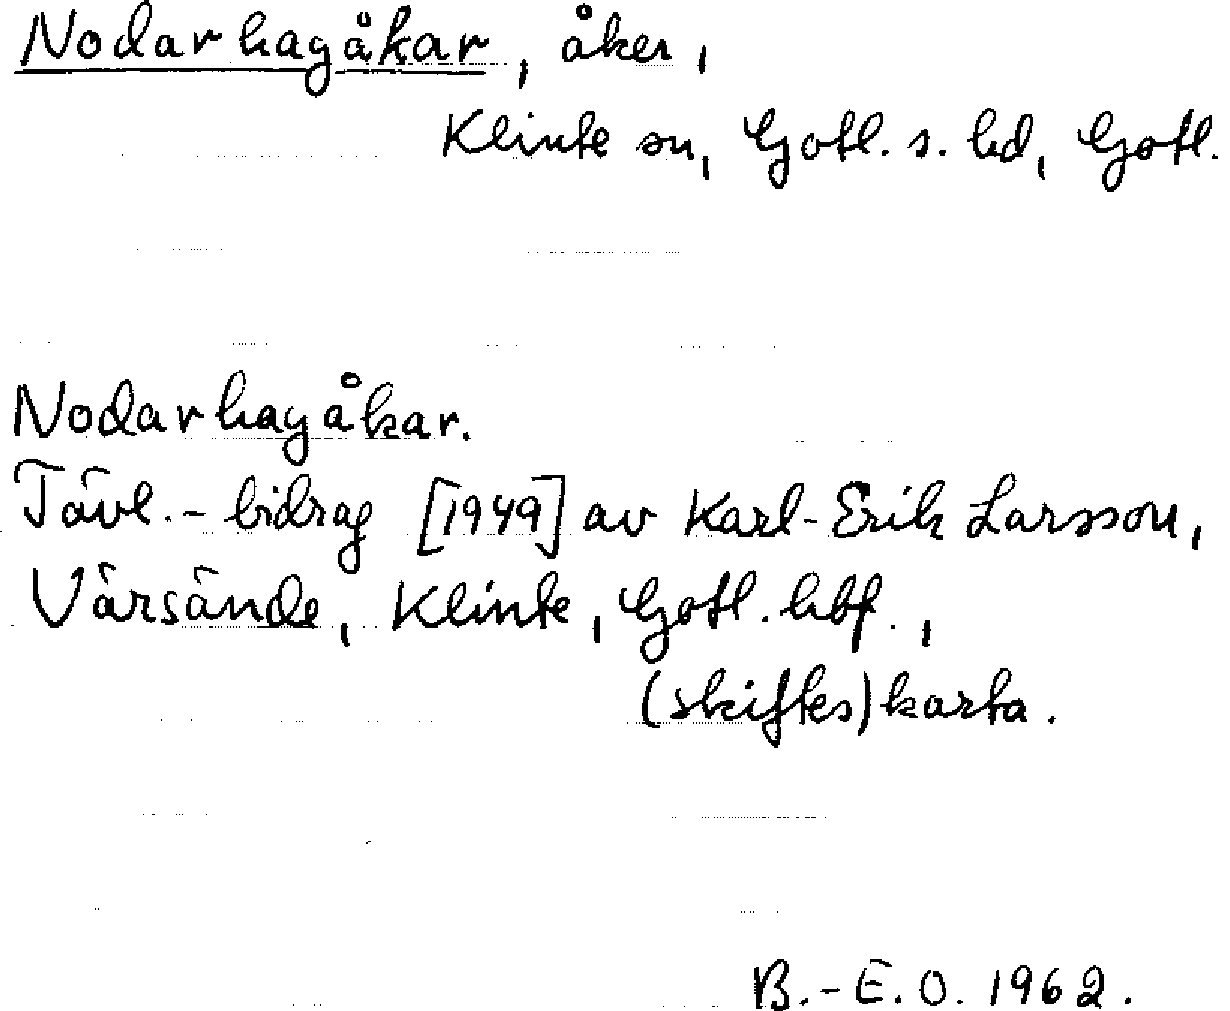 Nodarhagåkar, åker,
Klinte sn, Gotl. s. hd, Gotl.
Nodarhagåkar.
Tävl.-bidrag [1949] av Karl-Erik Larsson,
Värsände, Klinte, Gotl. hbf.,
(skiftes)karta.
B.-E.O. 1962.